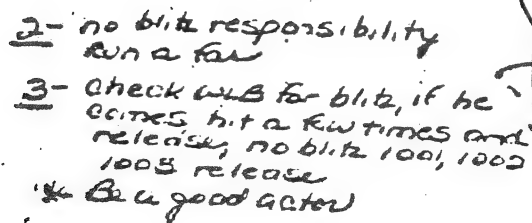 2- no blitz responsibility
Run a fan
3- Check WLB for blitz, if he
comes hit a few times and
release, no blitz 1001, 1002
1003 release
* Be a good actor